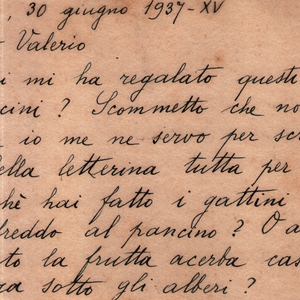 , 30 giugno 1937-XV
Valerio
i mi ha regalato questi
cini ? Scommetto che no
io me ne servo per scr
ella letterina tutta per
hè hai fatto i gattini
freddo al pancino ? O a
to la frutta acerba cas
ga sotto gli alberi ?